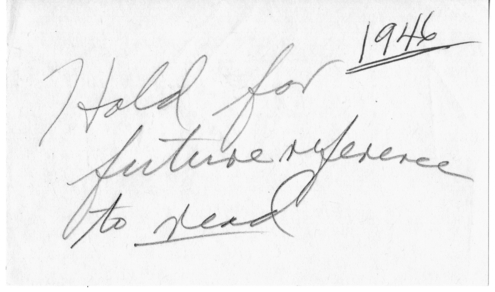 1946
Hold for
future reference
to read